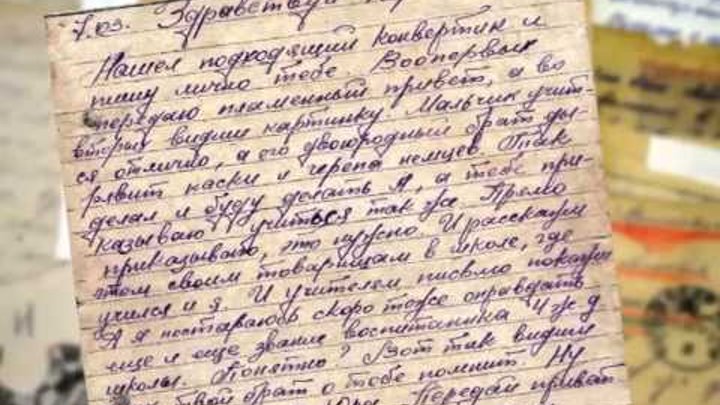 7.03. Здравствуй
Нашел подходящий конвертик и
пишу лично тебе. Воопервых
передаю пламенный привет, а во
вторых видиш картинку. Мальчик учит-
ся отлично, а его двоюродный брат ды-
рявит каски и черепа немцев. Так
делал и буду делать я, а тебе при-
казываю учиться так же. Прямо
приказываю, это грусно. И расскажи
этом своим товарищам в школе, где
учился и я. И учителем письмо покажи
А я постараюсь скоро тоже оправдать
еще и еще звание воспитаника
школы. Понятно? Вот так видиш
твой брат о тебе помнит. Ну
Юра. Передай привет